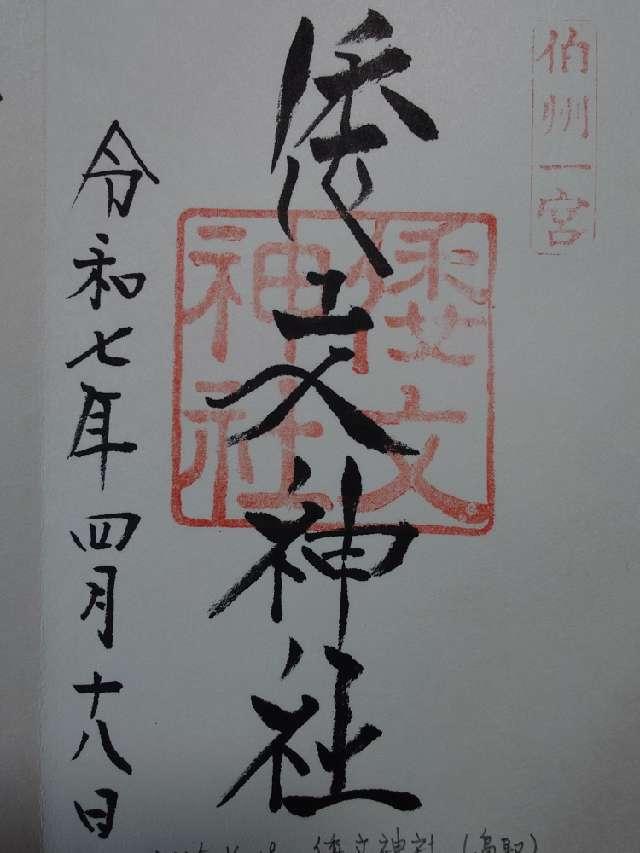 伯州一宮
倭文神社
倭文神社
令和七年四月十八日
倭文神社(鳥取)